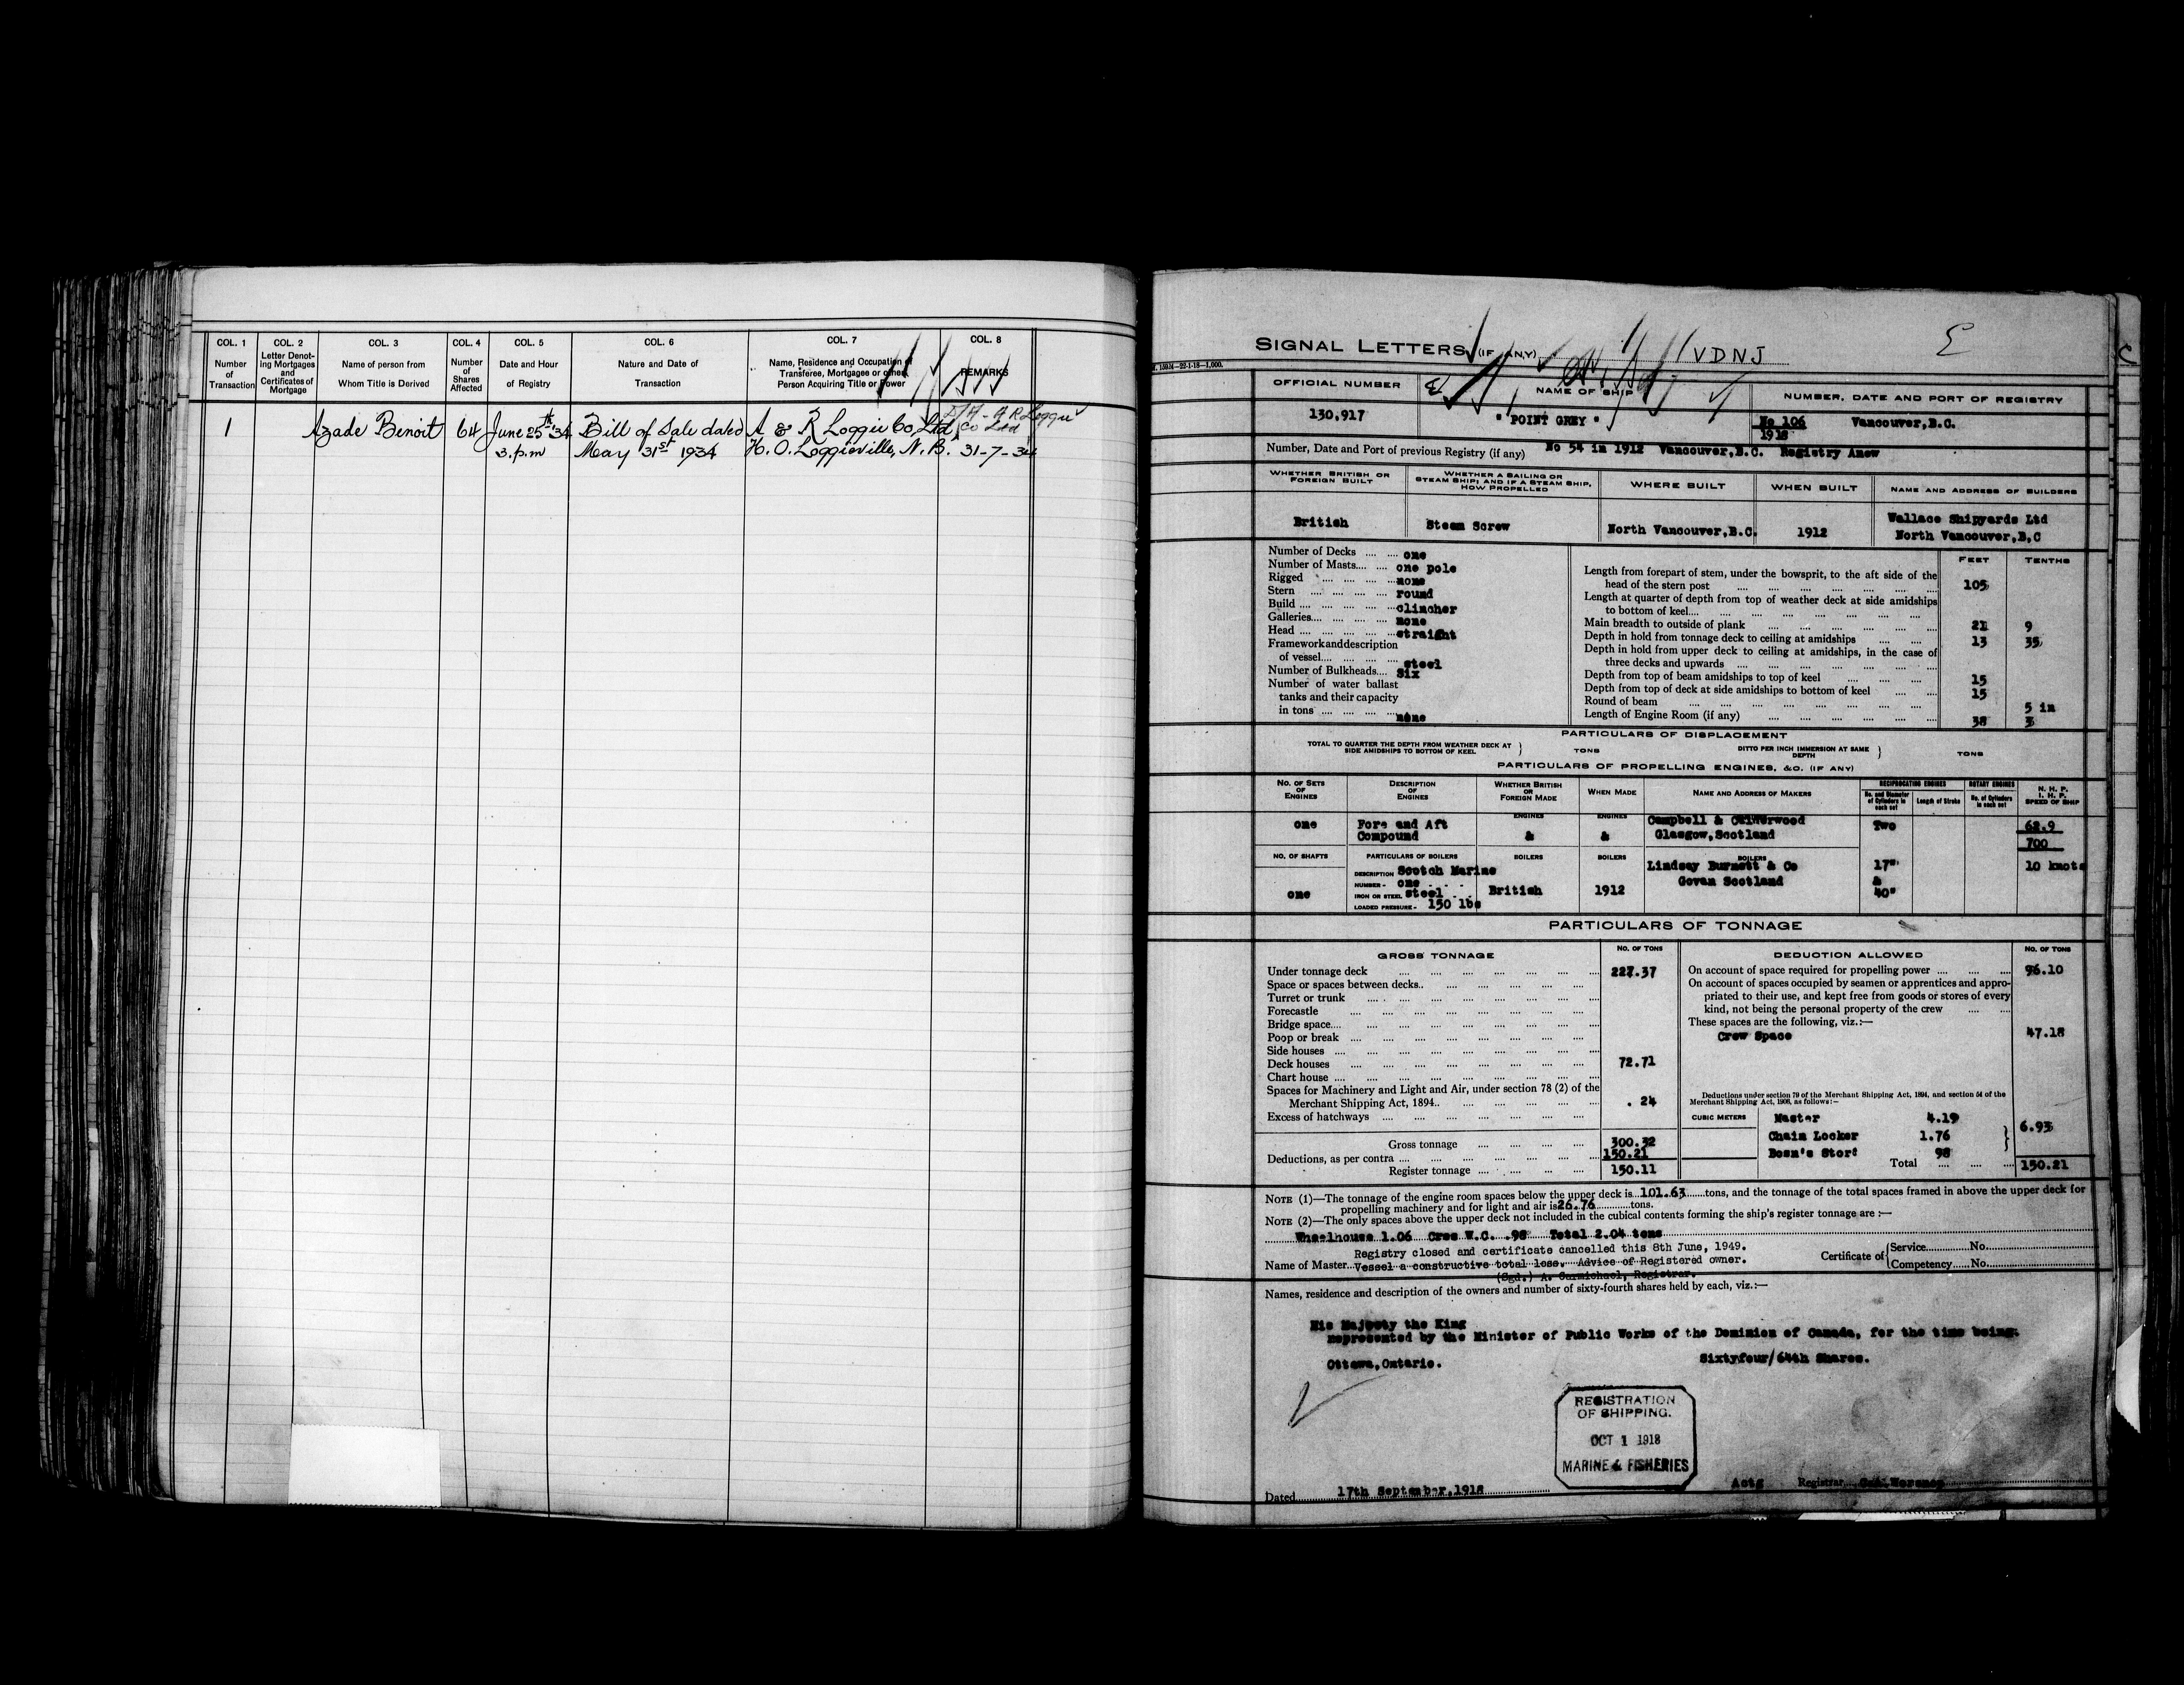 COL. 1 COL. 2 COL. 3 COL. 4 COL. 5 COL. 6 COL. 7 COL. 8
Number of Transaction
Letter Denoting Mortgages and Certificates of Mortgage
Name of person from Whom Title is Derived
Number of Shares Affected
Date and Hour of Registry
Nature and Date of Transaction
Name, Residence and Occupation of Transferee, Mortgagee or other Person Acquiring Title or Power
REMARKS
1 Azade Benoit 64 June 25th '34 Bill of Sale dated A & R Loggie Co Ltd
3.p.m May 31st 1934 H.O. Loggieville, N.B. 31-7-34
A R Loggie
Co Ltd
SIGNAL LETTERS (IF ANY) VDNJ
OFFICIAL NUMBER
130,917
NAME OF SHIP
"POINT GREY"
NUMBER, DATE AND PORT OF REGISTRY
No 106 Vancouver,B.C.
1918
Number, Date and Port of previous Registry (if any) No 54 in 1912 Vancouver,B.C. Registry Anew
WHETHER BRITISH OR FOREIGN BUILT
British
WHETHER A SAILING OR STEAM SHIP; AND IF A STEAM SHIP, HOW PROPELLED
Steam Screw
WHERE BUILT
North Vancouver,B.C.
WHEN BUILT
1912
NAME AND ADDRESS OF BUILDERS
Wallace Shipyards Ltd
North Vancouver,B,C
Number of Decks one
Number of Masts one pole
Rigged none
Stern round
Build clincher
Galleries none
Head straight
Framework and description
of vessel steel
Number of Bulkheads Six
Number of water ballast
tanks and their capacity
in tons none
FEET TENTHS
Length from forepart of stem, under the bowsprit, to the aft side of the
head of the stern post 105
Length at quarter of depth from top of weather deck at side amidships
to bottom of keel
Main breadth to outside of plank 21 9
Depth in hold from tonnage deck to ceiling at amidships 13 35
Depth in hold from upper deck to ceiling at amidships, in the case of
three decks and upwards
Depth from top of beam amidships to top of keel 15
Depth from top of deck at side amidships to bottom of keel 15
Round of beam 5 in
Length of Engine Room (if any) 38 3
PARTICULARS OF DISPLACEMENT
TOTAL TO QUARTER THE DEPTH FROM WEATHER DECK AT SIDE AMIDSHIPS TO BOTTOM OF KEEL } TONS
DITTO PER INCH IMMERSION AT SAME DEPTH } TONS
PARTICULARS OF PROPELLING ENGINES, &C. (IF ANY)
NO. OF SETS OF ENGINES
one
DESCRIPTION OF ENGINES
Fore and Aft
Compound
WHETHER BRITISH OR FOREIGN MADE
ENGINES
&
WHEN MADE
ENGINES
&
NAME AND ADDRESS OF MAKERS
Campbell & Calderwood
Glasgow,Scotland
RECIPROCATING ENGINES
No. and Diameter of Cylinders in each set
Length of Stroke
Two
ROTARY ENGINES
No. of Cylinders in each set
N. H. P.
I. H. P.
SPEED OF SHIP
62.9
700
10 knots
NO. OF SHAFTS
one
PARTICULARS OF BOILERS
DESCRIPTION Scotch Marine
NUMBER - one
IRON OR STEEL steel
LOADED PRESSURE - 150 lbs
BOILERS
British
BOILERS
1912
BOILERS
Lindsay Burnett & Co
Govan Scotland
17"
&
40"
PARTICULARS OF TONNAGE
GROSS TONNAGE NO. OF TONS
Under tonnage deck 227.37
Space or spaces between decks
Turret or trunk
Forecastle
Bridge space
Poop or break
Side houses
Deck houses 72.71
Chart house
Spaces for Machinery and Light and Air, under section 78 (2) of the
Merchant Shipping Act, 1894 . 24
Excess of hatchways
Gross tonnage 300.32
Deductions, as per contra 150.21
Register tonnage 150.11
DEDUCTION ALLOWED NO. OF TONS
On account of space required for propelling power 96.10
On account of spaces occupied by seamen or apprentices and appro-
priated to their use, and kept free from goods or stores of every
kind, not being the personal property of the crew
These spaces are the following, viz.:—
Crew Space 47.18
Deductions under section 79 of the Merchant Shipping Act, 1894, and section 54 of the
Merchant Shipping Act, 1906, as follows:—
CUBIC METERS
Master 4.19
Chain Locker 1.76
Bosn's Store 98
6.93
Total 150.21
NOTE (1)—The tonnage of the engine room spaces below the upper deck is 101.63 tons, and the tonnage of the total spaces framed in above the upper deck for
propelling machinery and for light and air is 26.76 tons.
NOTE (2)—The only spaces above the upper deck not included in the cubical contents forming the ship's register tonnage are :—
Wheelhouse 1.06 Crew W.C. .98 Total 2.04 tons
Registry closed and certificate cancelled this 8th June, 1949.
Name of Master Vessel a constructive total loss. Advice of Registered owner.
(Sgd.) A. Carmichael, Registrar.
Certificate of { Service No.
Competency No.
Names, residence and description of the owners and number of sixty-fourth shares held by each, viz.:—
His Majesty the King
represented by the Minister of Public Works of the Dominion of Canada, for the time being.
Ottawa,Ontario. Sixtyfour/64th Shares.
REGISTRATION
OF SHIPPING.
OCT 1 1918
MARINE & FISHERIES
Dated 17th September,1918
Actg Registrar